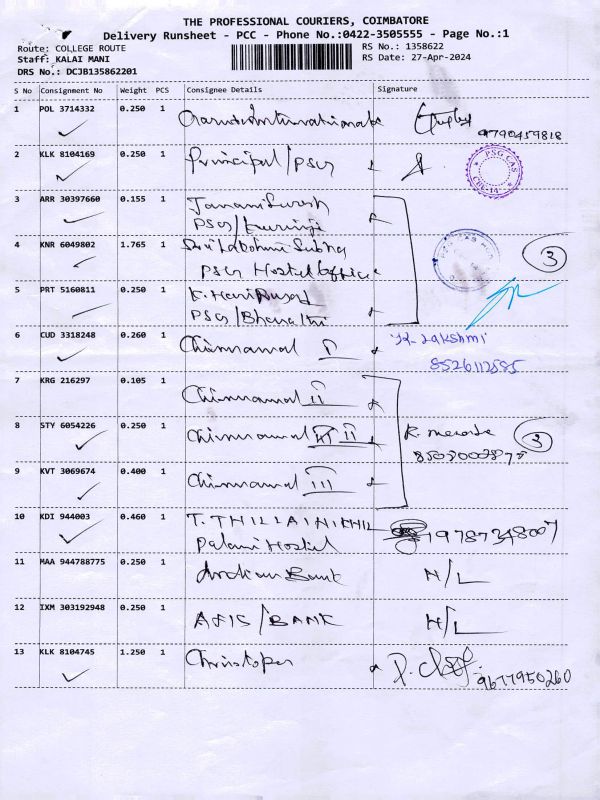 THE PROFESSIONAL COURIERS, COIMBATORE
Delivery Runsheet - PCC - Phone No.:0422-3505555 - Page No.:1
Route: COLLEGE ROUTE
Staff: KALAI MANI
DRS No.: DCJB135862201
RS No.: 1358622
RS Date: 27-Apr-2024
S No Consignment No Weight PCS Consignee Details Signature
1 POL 3714332 0.250 1
9790459818
2 KLK 8104169 0.250 1 Principal/PSG
PSG CAS
CBE-14
3 ARR 30397660 0.155 1 Janani Suresh
PSG/Kurinji
4 KNR 6049802 1.765 1 Sri Lakshmi Subha
PSG Hostel Office
3
5 PRT 5160811 0.250 1 K. Hari Prasad
PSG/Bharathi
6 CUD 3318248 0.260 1 Chinnamal I
Lakshmi
8526112585
7 KRG 216297 0.105 1 Chinnamal II
8 STY 6054226 0.250 1 Chinnamal II
3
9 KVT 3069674 0.400 1 Chinnamal III
10 KDI 944003 0.460 1 T. THILLAINIKHIL
Palani Hostel
9787348007
11 MAA 944788775 0.250 1 Bank N/L
12 IXM 303192948 0.250 1 AXIS/BANK N/L
13 KLK 8104745 1.250 1 Christoper
9677950260